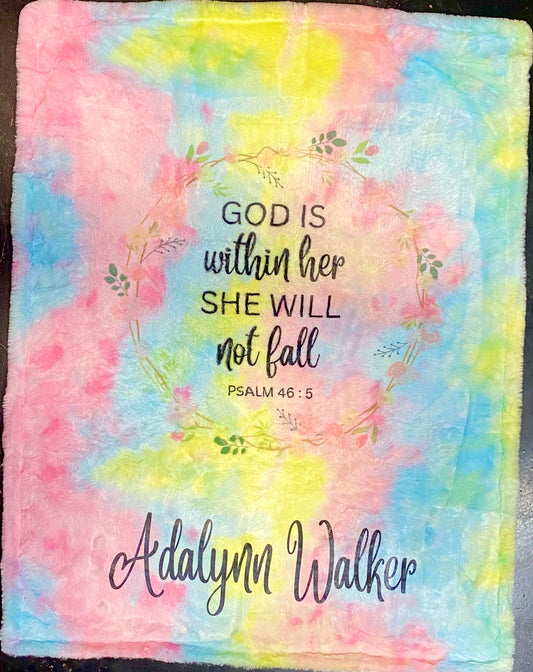 GOD IS
within her
SHE WILL
not fall
PSALM 46:5
Adalynn Walker